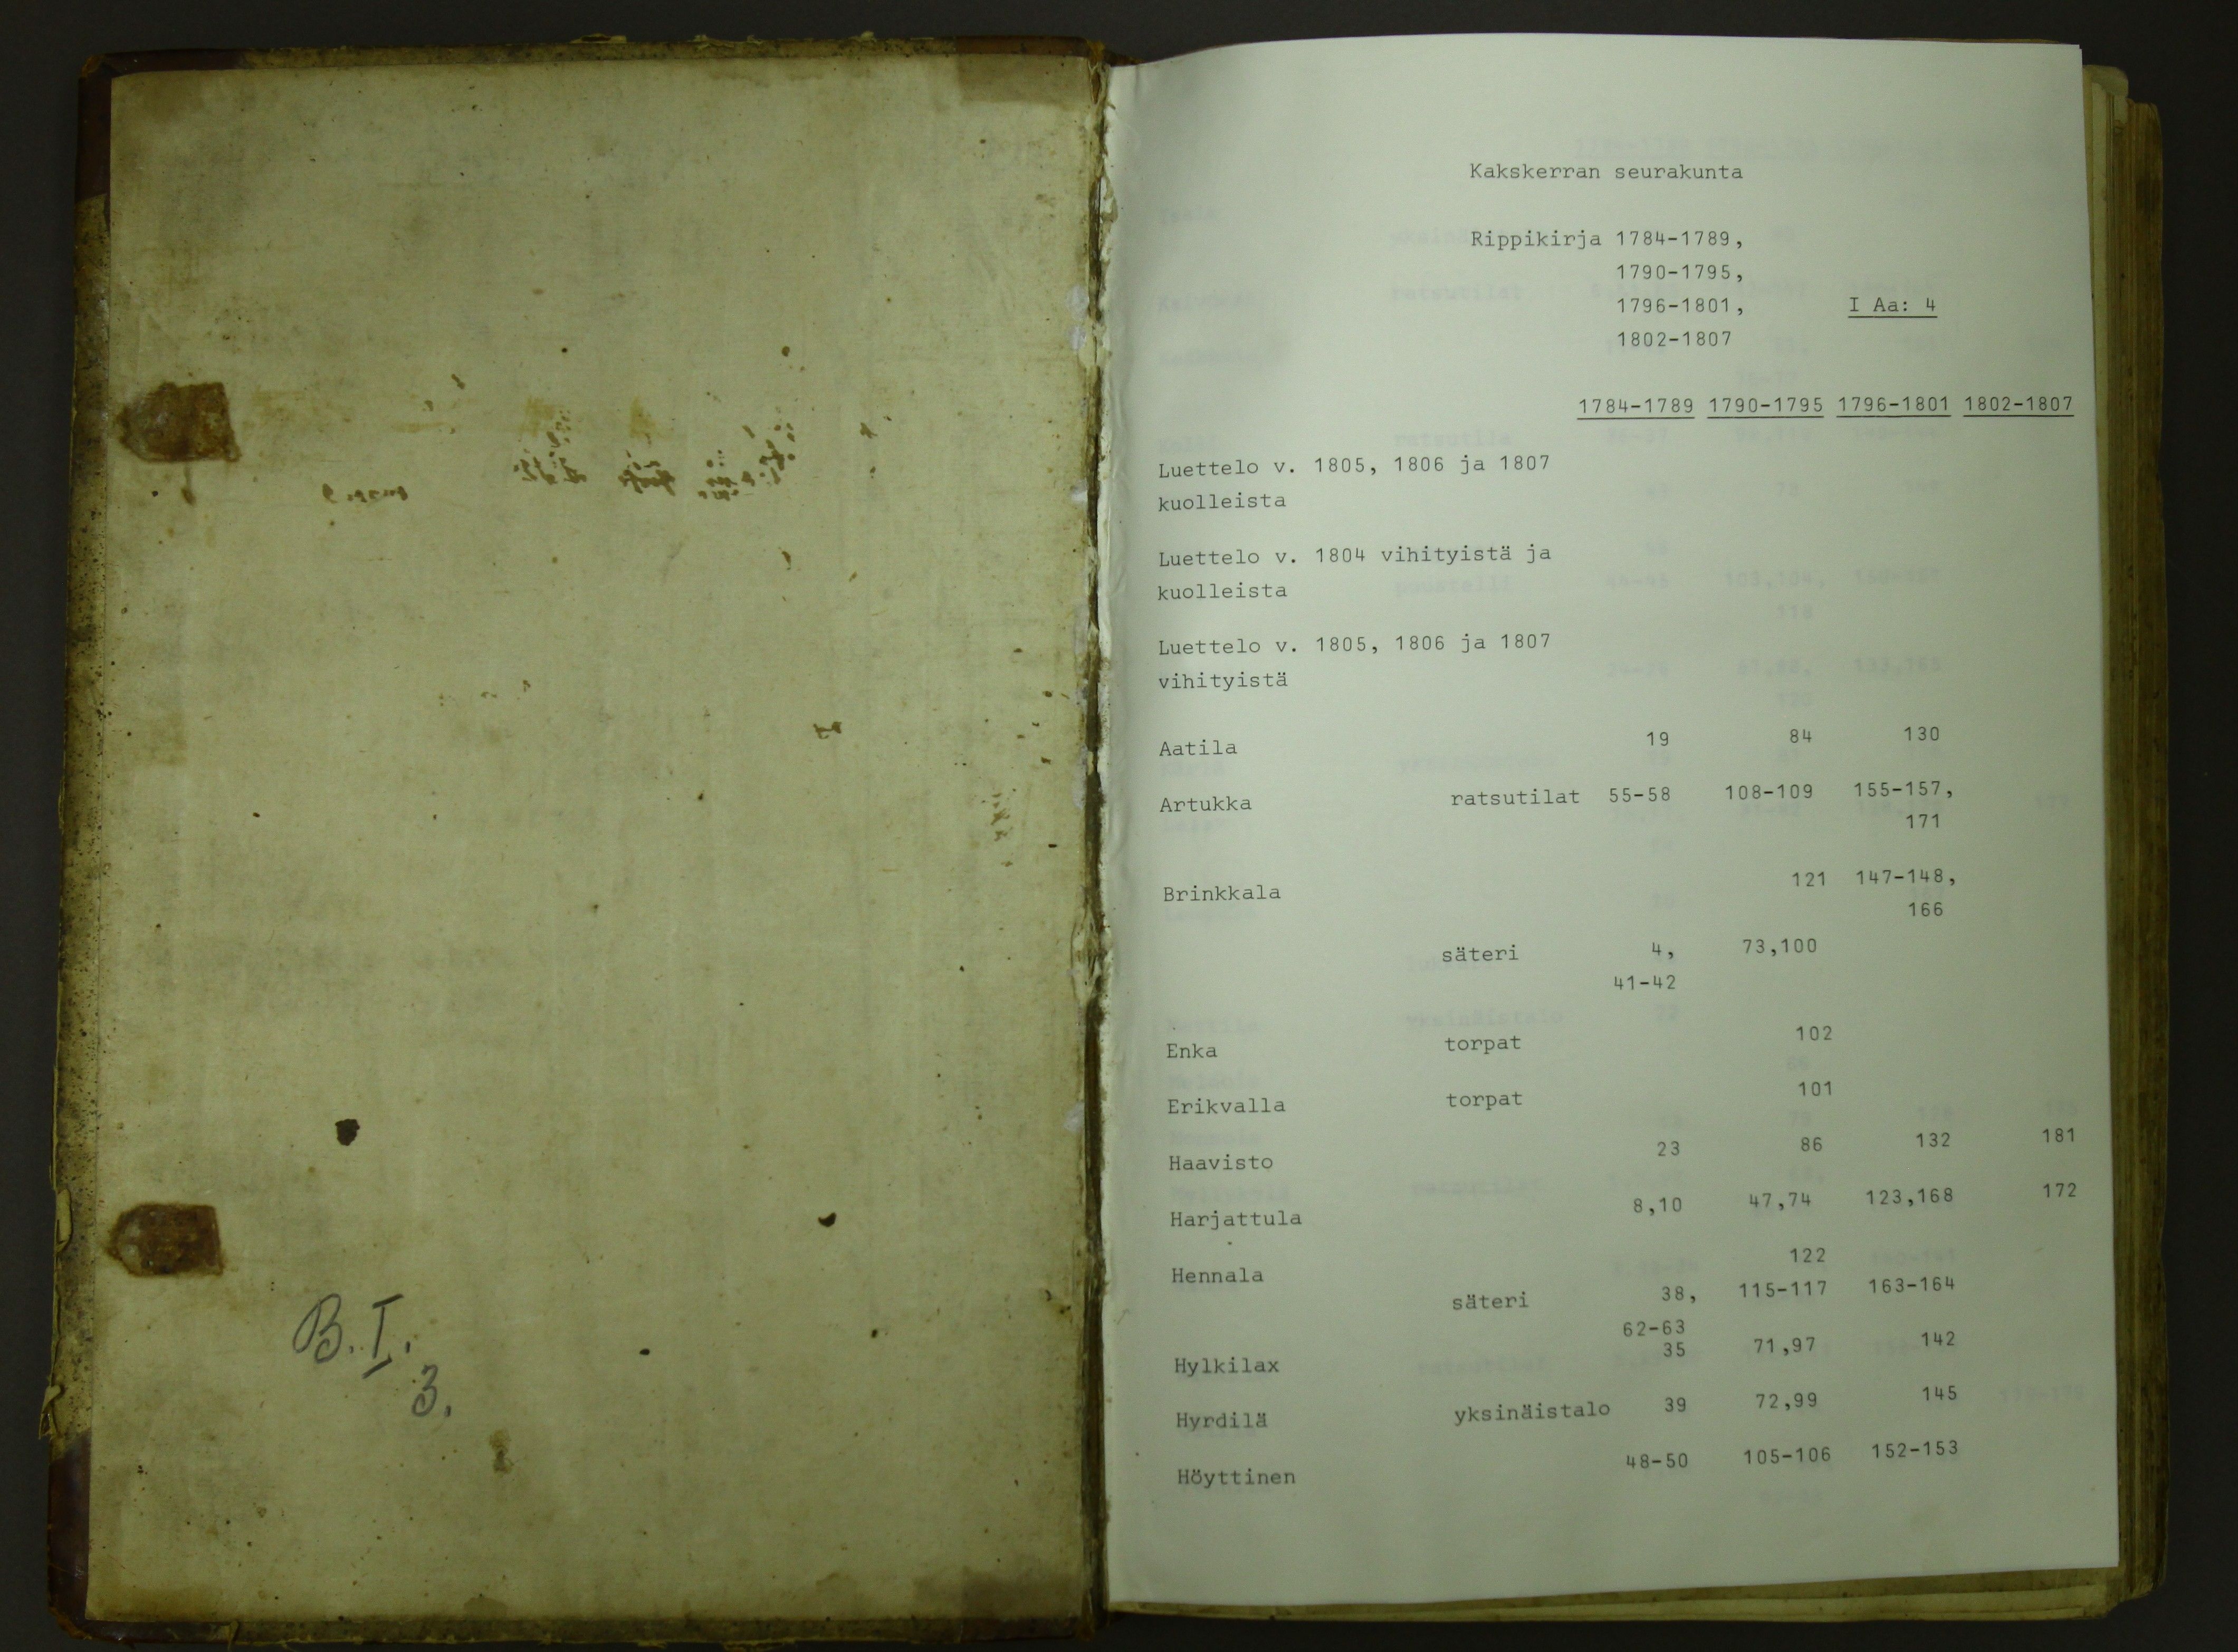 B.I.
3.
Kakskerran seurakunta
Rippikirja 1784-1789,
1790-1795,
1796-1801, I Aa: 4
1802-1807
1784-1789 1790-1795 1796-1801 1802-1807
Luettelo v. 1805, 1806 ja 1807
kuolleista
Luettelo v. 1804 vihityistä ja
kuolleista
Luettelo v. 1805, 1806 ja 1807
vihityistä
Aatila 19 84 130
Artukka ratsutilat 55-58 108-109 155-157,
171
Brinkkala 121 147-148,
166
säteri 4, 73,100
41-42
Enka torpat 102
Erikvalla torpat 101
Haavisto 23 86 132 181
Harjattula 8,10 47,74 123,168 172
Hennala 122
säteri 38, 115-117 163-164
62-63
Hylkilax 35 71,97 142
Hyrdilä yksinäistalo 39 72,99 145
Höyttinen 48-50 105-106 152-153